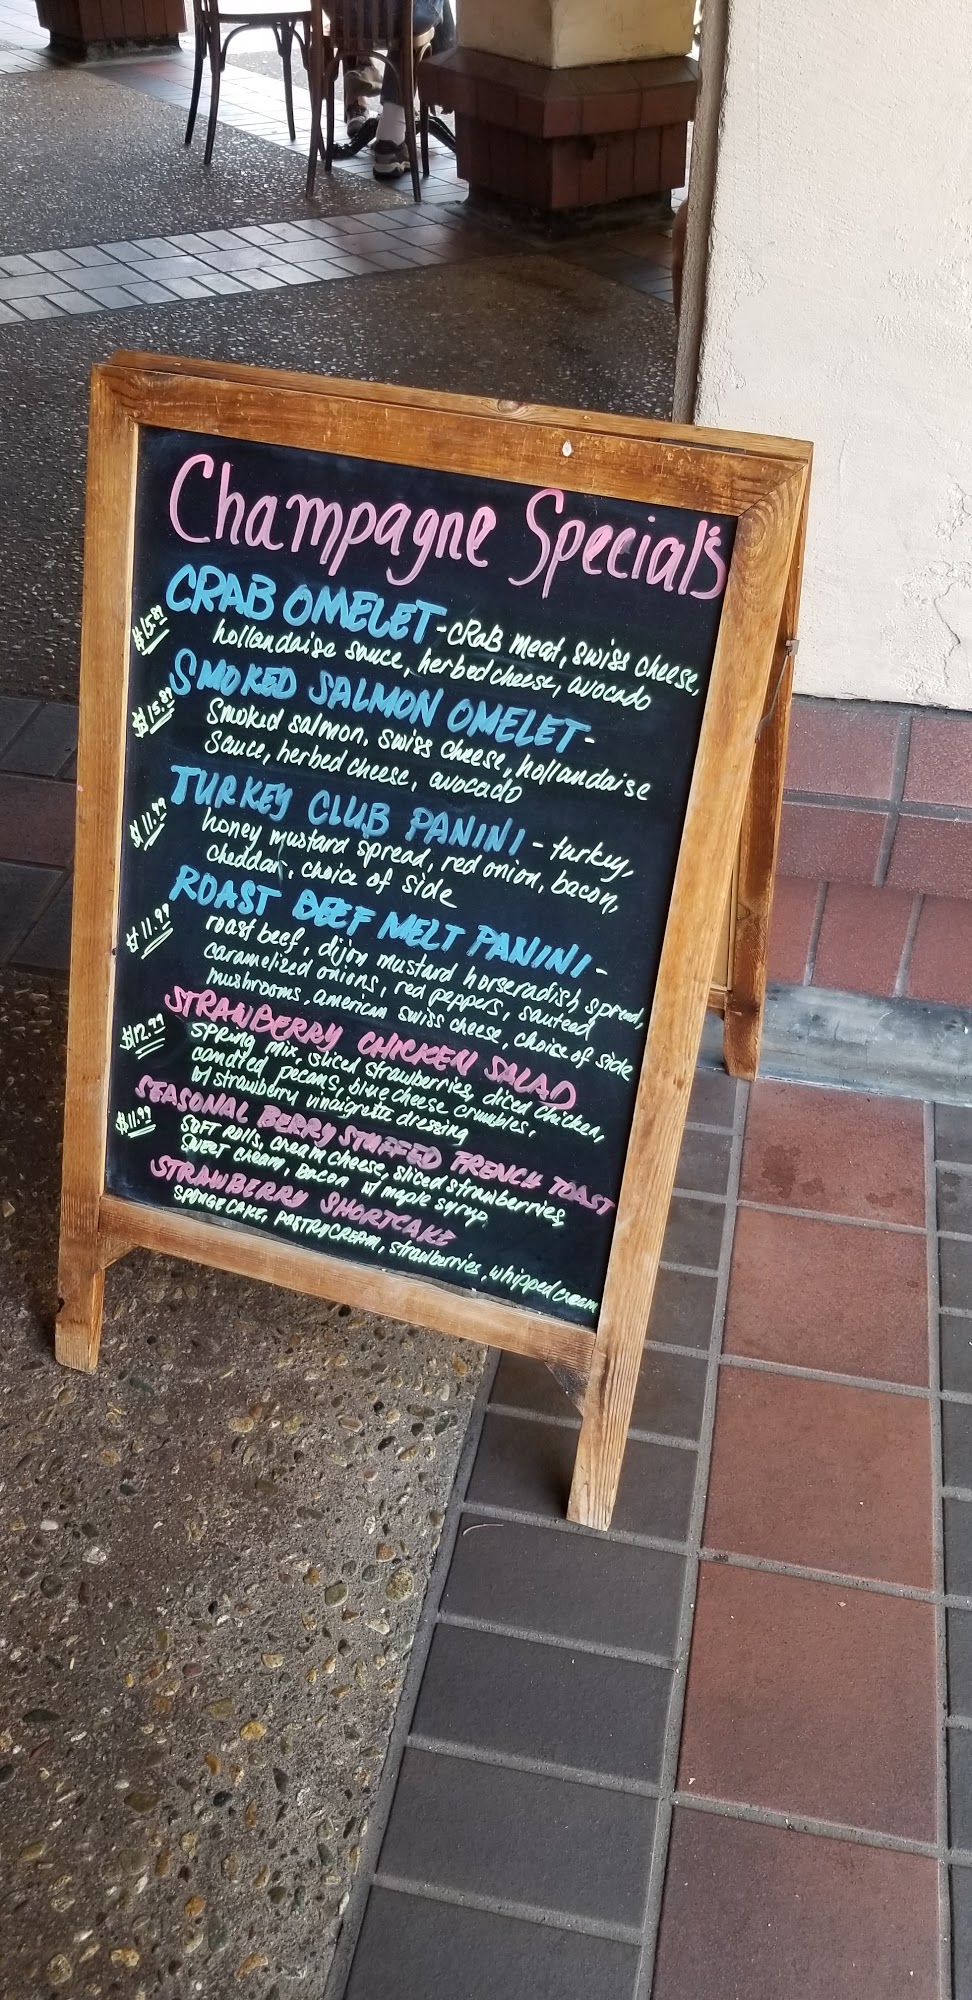 Champagne Special's
CRAB OMELET - CRaB meat, swiss cheese,
$15.89 hollandaise sauce, herbed cheese, avocado
SMOKED SALMON OMELET -
$15.89 Smoked salmon, swiss cheese, hollandaise
sauce, herbed cheese, avocado
TURKEY CLUB PANINI - turkey,
$11.99 honey mustard spread, red onion, bacon,
cheddar, choice of side
ROAST BEEF MELT PANINI -
$11.99 roast beef, dijon mustard horseradish spread,
caramelized onions, red peppers, sauteed
mushrooms, american swiss cheese, choice of side
STRAWBERRY CHICKEN SALAD
$12.99 spring mix, sliced strawberries, diced chicken,
candied pecans, blue cheese crumbles,
w/ strawberry vinaigrette dressing
SEASONAL BERRY STUFFED FRENCH TOAST
$11.99 SOFT ROLLS, cream cheese, sliced strawberries,
SWEET CREAM, BACON w/ maple syrup
STRAWBERRY SHORTCAKE
SPONGE CAKE, PASTRY CREAM, strawberries, whipped cream